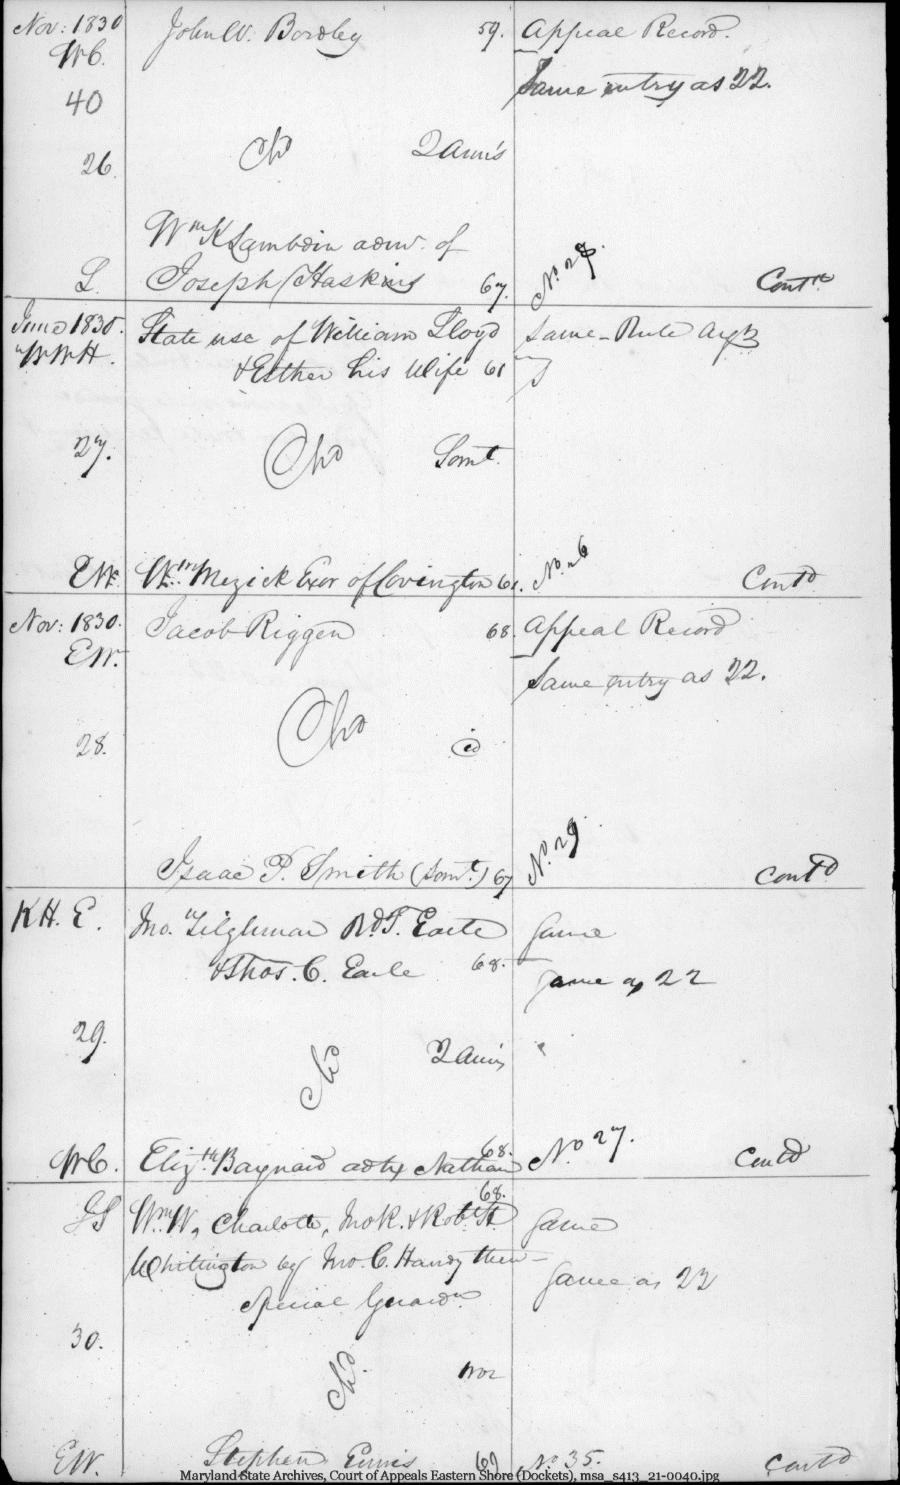 Nov: 1830 John W. Bordley 59. Appeal Record.
WC.
Same entry as 22.
40
26. 2 Ann's
Wm K Lambdin adm. of
L. Joseph Haskins 67. No. 28. Contd.
June 1830. State use of William Lloyd Same - Rule Arg
WWH. & Esther his Wife 61
27. Somt.
EW. Wm Mezick Exor of Covington 61. No. 26 Contd
Nov: 1830. Jacob Riggen 68. Appeal Record
EW.
Same entry as 22.
28. id
Isaac P. Smith (Somt.) 67 No. 29. Contd.
KH. E. Jno. Tilghman Rd. T. Earle Same
& Thos. C. Earle 68.
Same as 22
29. 2 Ann's
68.
WC. Elizth Baynard adtx Nathan No 27. Contd
68.
JS Wm W, Charlotte, Jno K. & Robt H Same
Whitington by Jno. C. Handy their
Same as 22
Special Guardn
30. Wor
EW. Stephen Ennis 69 No 35. Contd
Maryland State Archives, Court of Appeals Eastern Shore (Dockets), msa_s413_21-0040.jpg